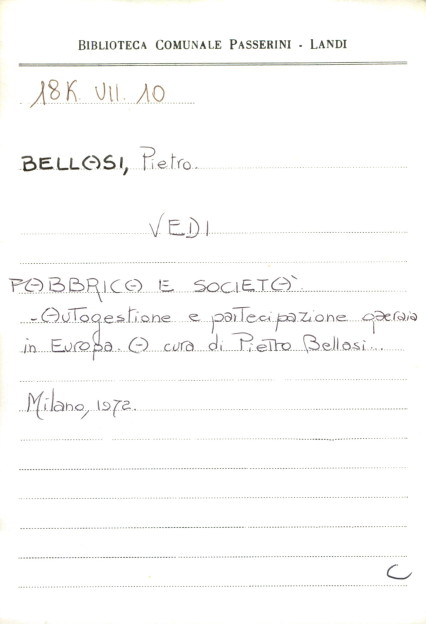 BIBLIOTECA COMUNALE PASSERINI - LANDI
18K. VII. 10
BELLASI, Pietro.
VEDI
FABBRICA E SOCIETÀ.
- Autogestione e partecipazione operaia
in Europa. A cura di Pietro Bellasi...
Milano, 1972.
C